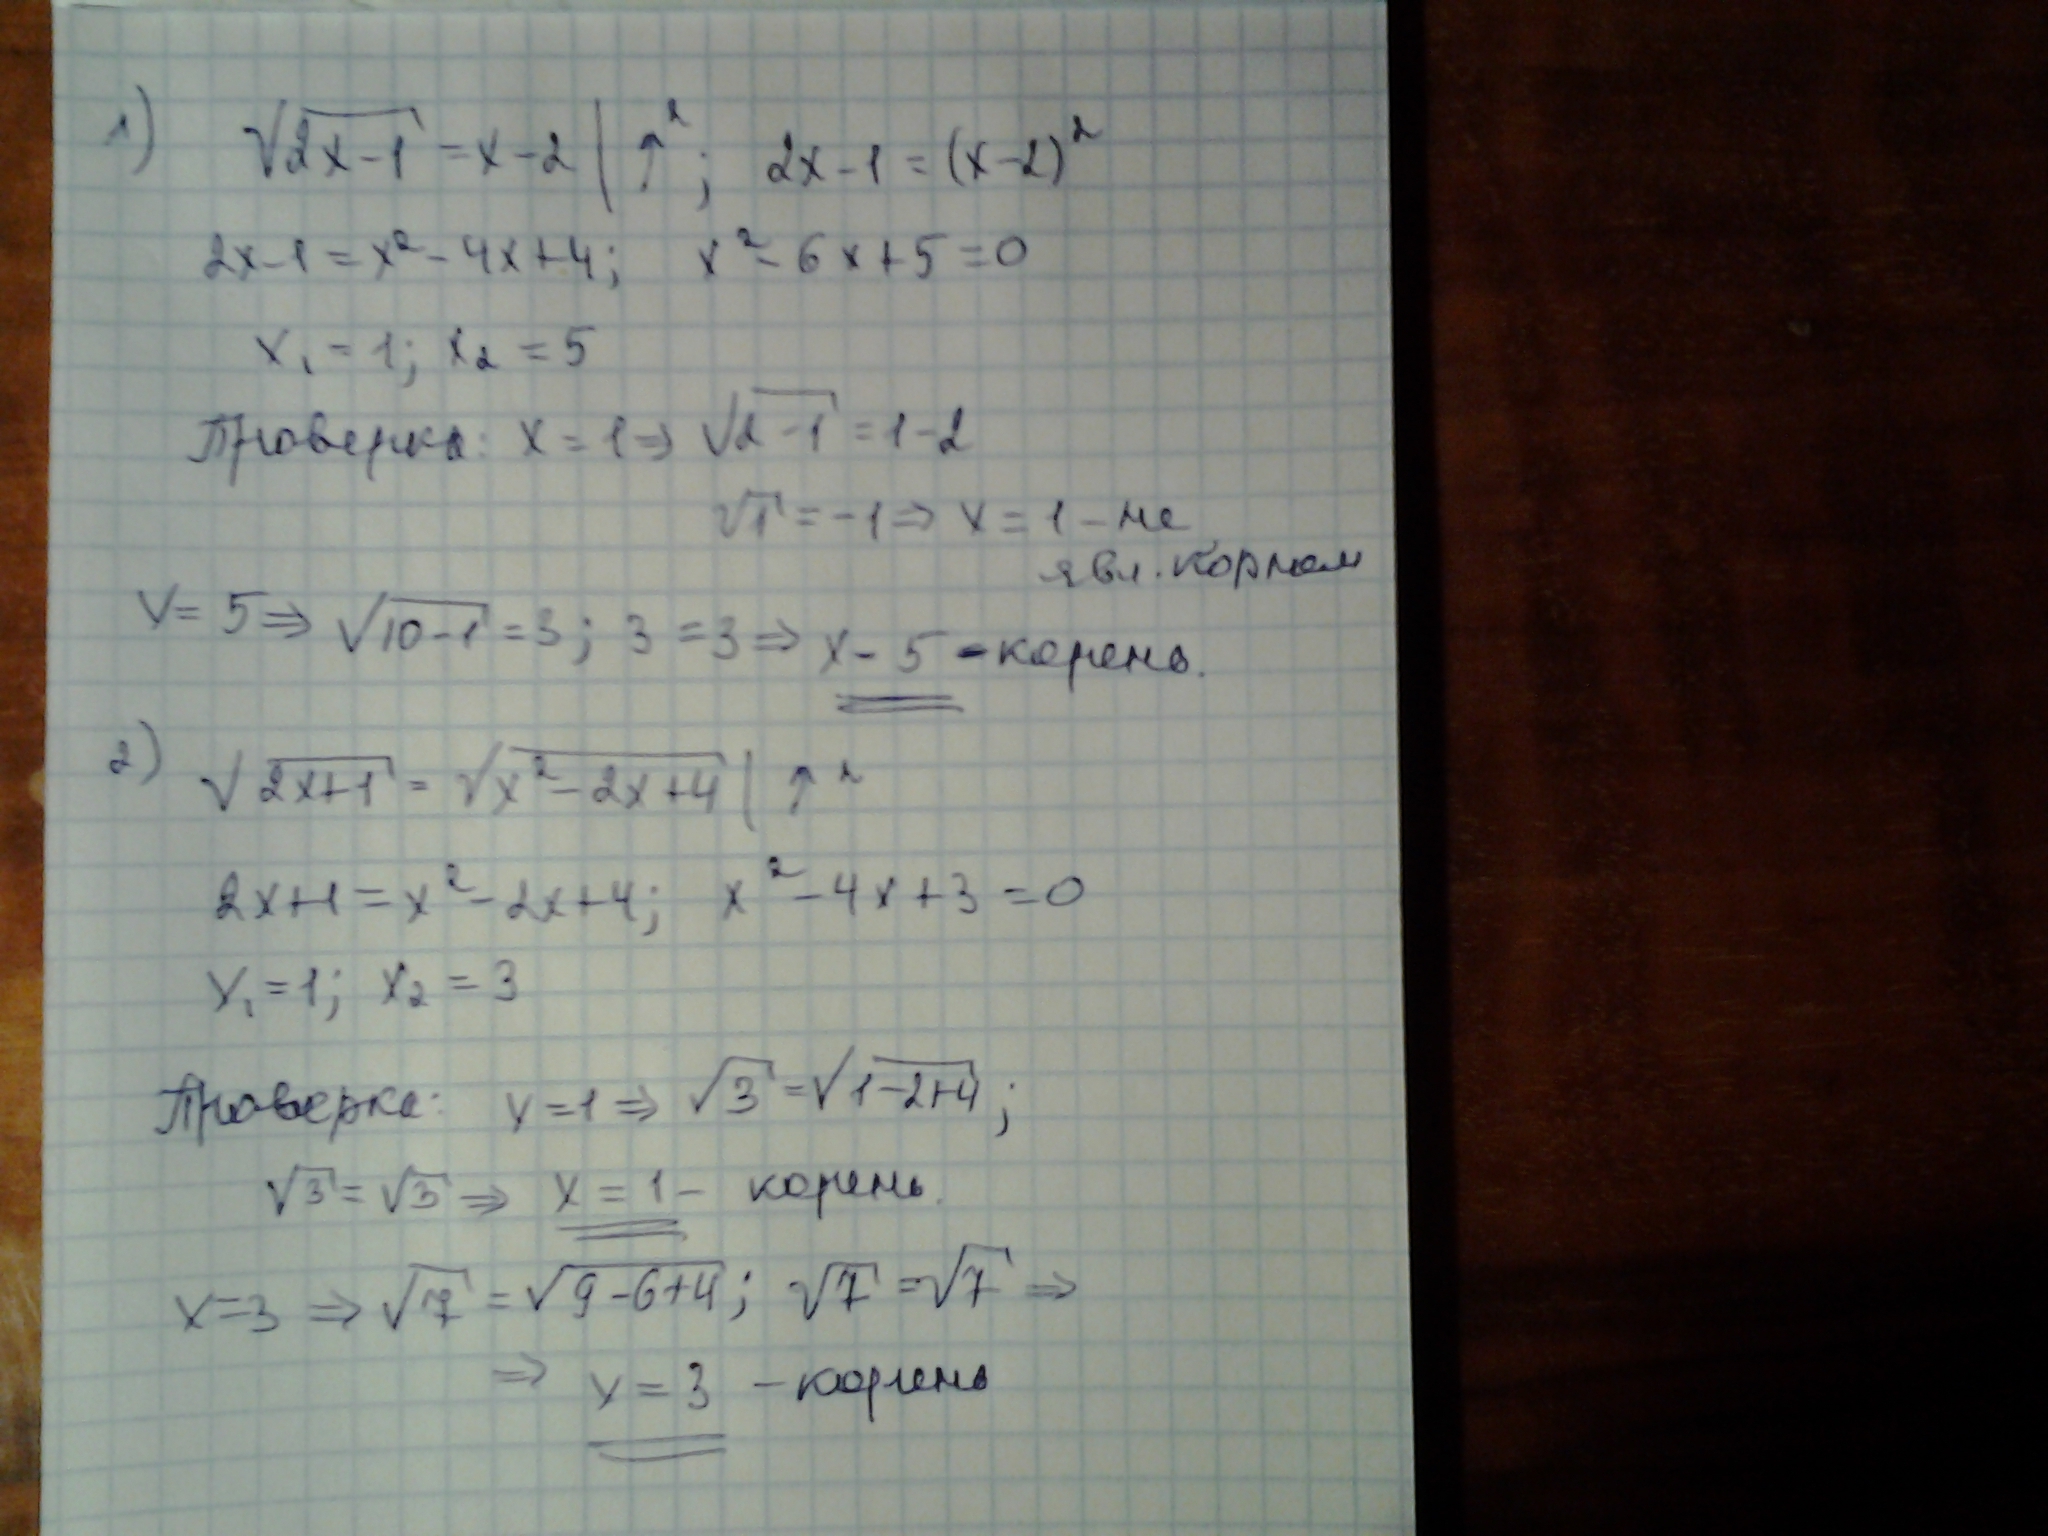 1) √(2x-1) = x-2 | ↑²; 2x-1 = (x-2)²
2x-1 = x²-4x+4; x²-6x+5=0
x₁ = 1; x₂ = 5
Проверка: x = 1 ⇒ √(2-1) = 1-2
√1 = -1 ⇒ x = 1 - не
явл. корнем
x = 5 ⇒ √(10-1) = 3; 3 = 3 ⇒ x - 5 - корень.
2) √(2x+1) = √(x²-2x+4) | ↑²
2x+1 = x²-2x+4; x²-4x+3=0
x₁ = 1; x₂ = 3
Проверка: x = 1 ⇒ √3 = √(1-2+4);
√3 = √3 ⇒ x = 1 - корень.
x = 3 ⇒ √7 = √(9-6+4); √7 = √7 ⇒
⇒ x = 3 - корень